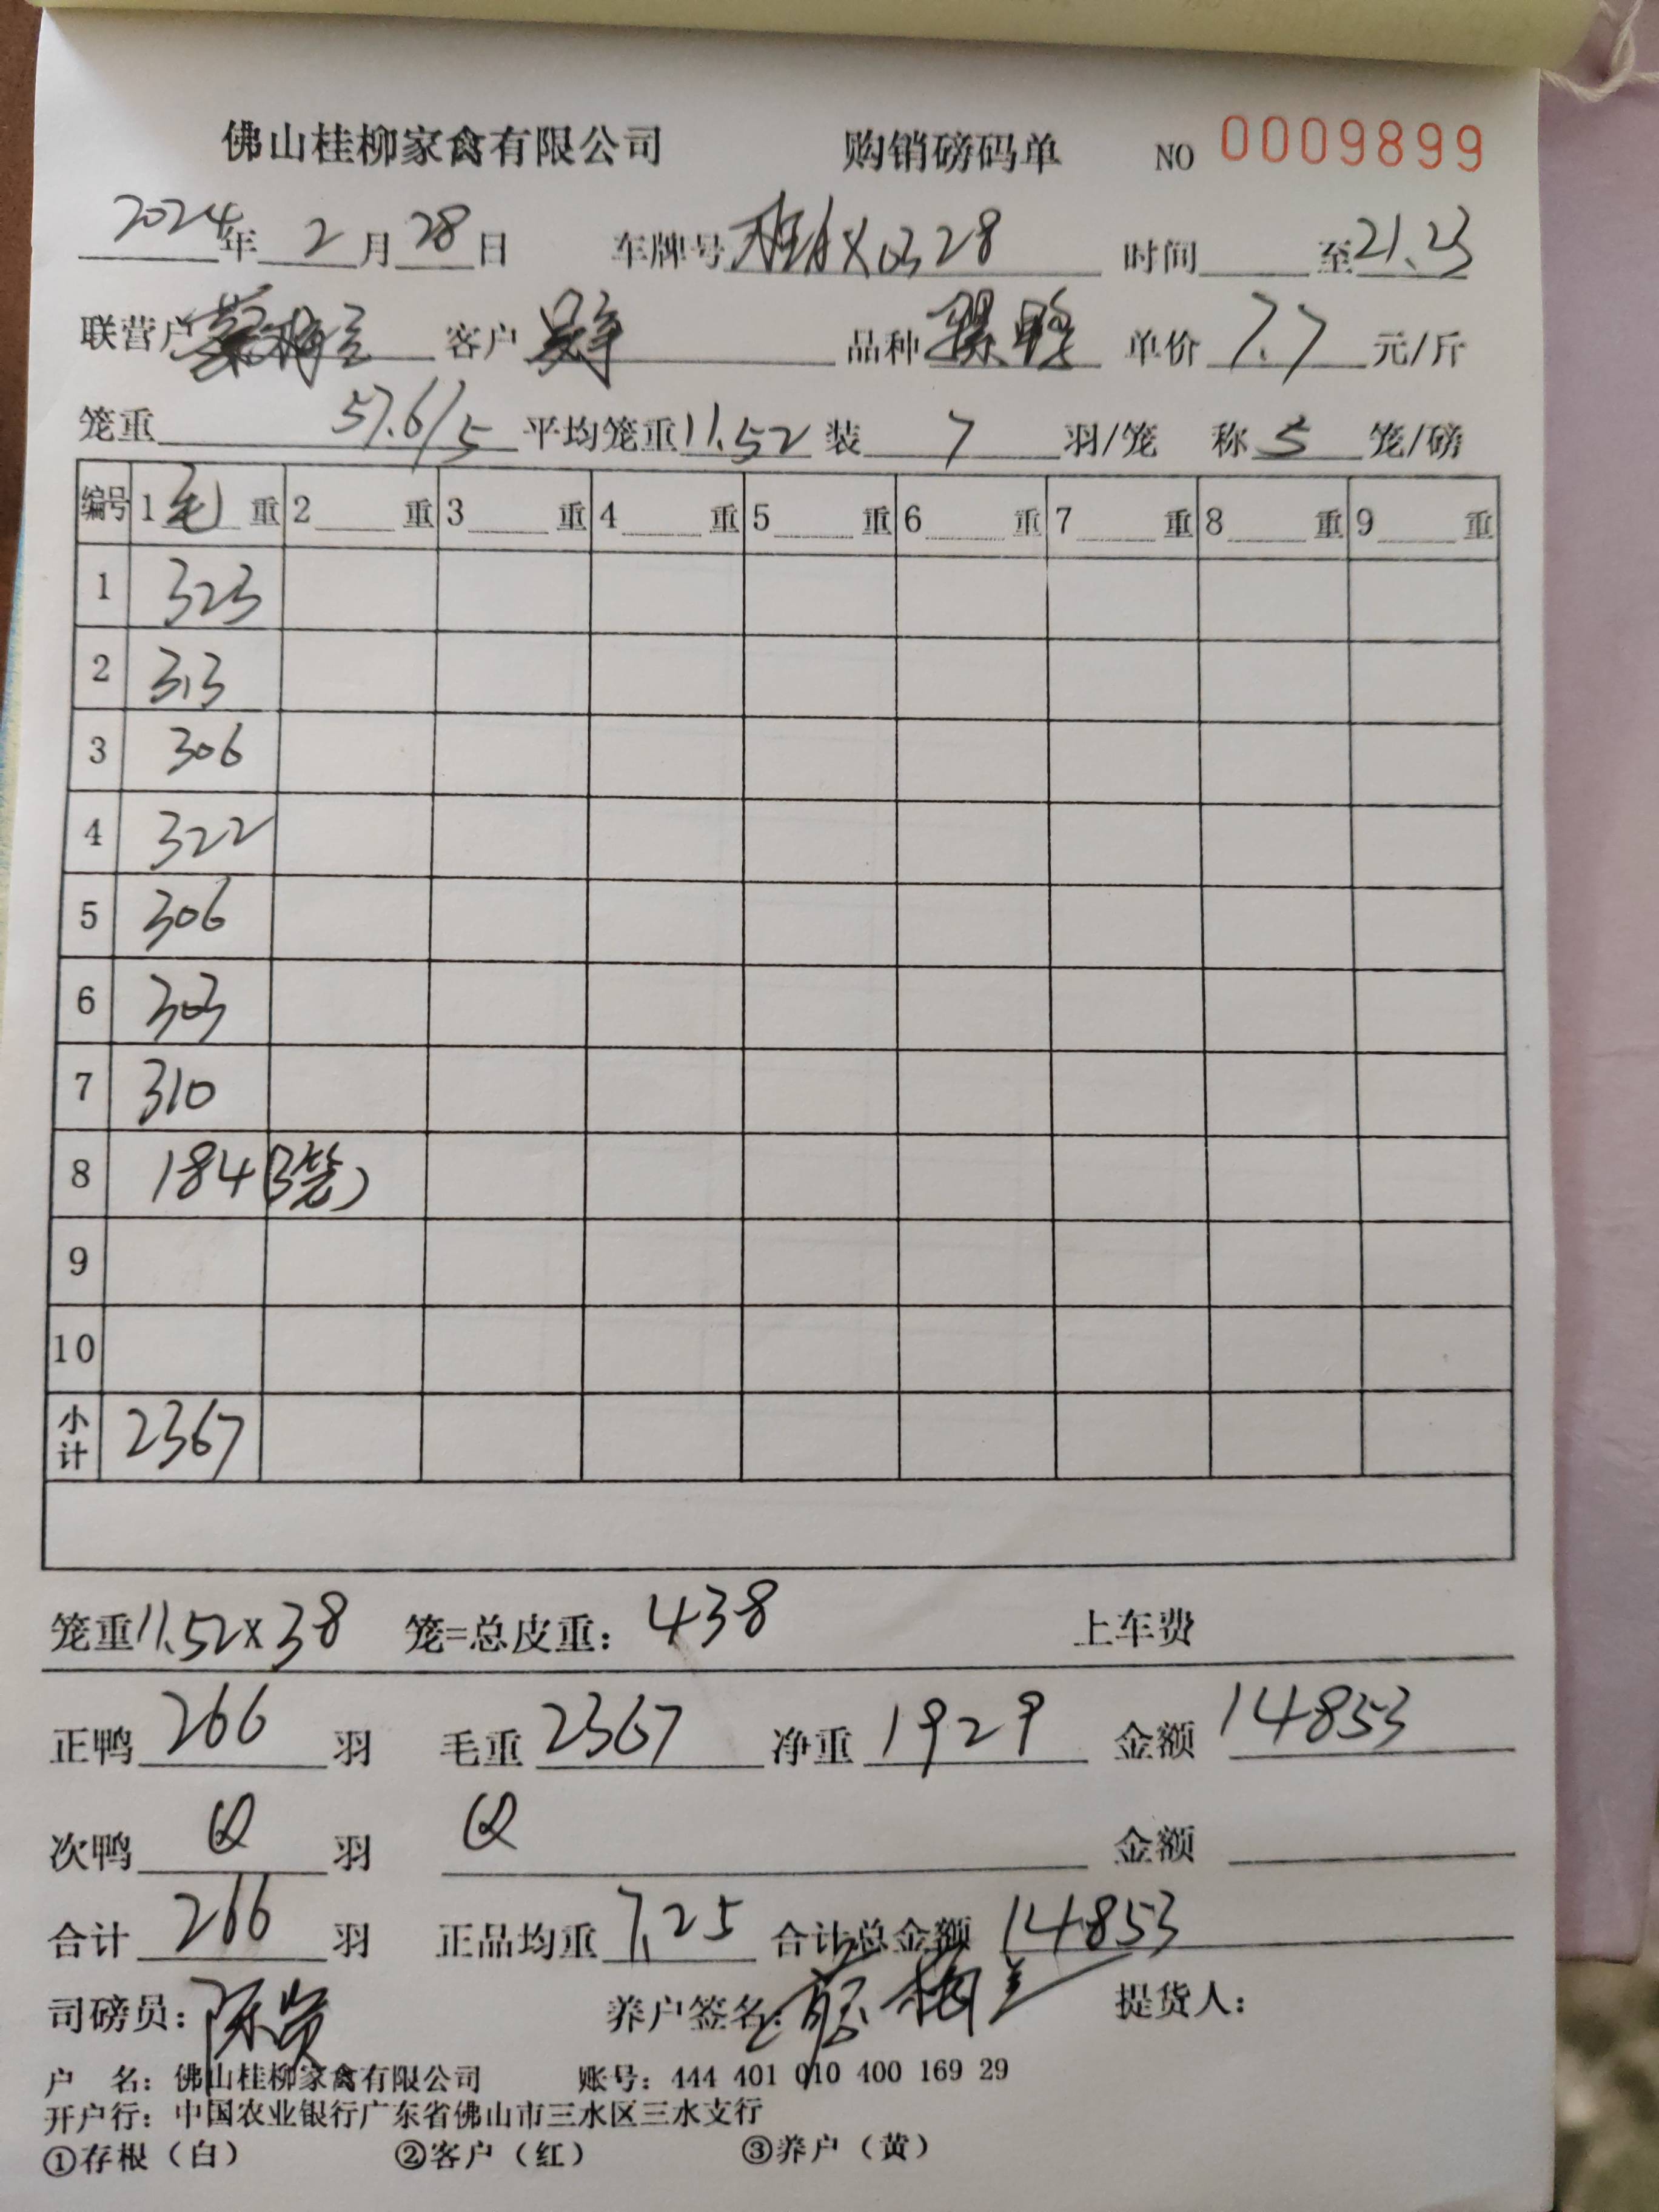 佛山桂柳家禽有限公司 购销磅码单 NO 0009899
2024年 2月 28日 车牌号 X0328 时间 至21.23
联营户 客户 品种 骡鸭 单价 7.7 元/斤
笼重 57.6/5 平均笼重 11.52 装 7 羽/笼 称 5 笼/磅
编号 1 毛 重 2 重 3 重 4 重 5 重 6 重 7 重 8 重 9 重
1 323
2 313
3 306
4 322
5 306
6 303
7 310
8 184(3笼)
9
10
小计 2367
笼重11.52x38 笼=总皮重：438 上车费
正鸭 266 羽 毛重 2367 净重 1929 金额 14853
次鸭 0 羽 0 金额
合计 266 羽 正品均重 7.25 合计总金额 14853
司磅员：陈贤 养户签名： 提货人：
户 名：佛山桂柳家禽有限公司 账号：444 401 010 400 169 29
开户行：中国农业银行广东省佛山市三水区三水支行
①存根（白） ②客户（红） ③养户（黄）